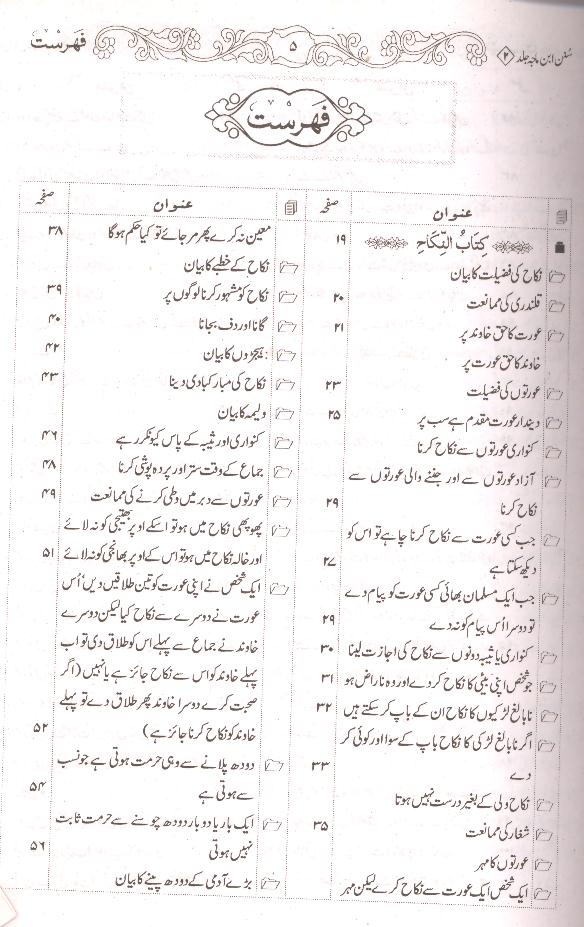 سُنن ابن ماجہ جلد ۲
۵
فہرست
فہرست
عنوان
صفحہ
کِتَابُ النِّکَاحِ
۱۹
نکاح کی فضیلت کا بیان
قلندری کی ممانعت
۲۰
عورت کا حق خاوند پر
۲۱
خاوند کا حق عورت پر
عورتوں کی فضیلت
۲۳
دیندار عورت مقدم ہے سب پر
۲۵
کنواری عورتوں سے نکاح کرنا
آزاد عورتوں سے اور جننے والی عورتوں سے
نکاح کرنا
۲۹
جب کسی عورت سے نکاح کرنا چاہے تو اس کو
دیکھ سکتا ہے
۲۷
جب ایک مسلمان بھائی کسی عورت کو پیام دے
تو دوسرا اُس پیام کو نہ دے
۲۹
کنواری یا ثیبہ دونوں سے نکاح کی اجازت لینا
۳۰
جو شخص اپنی بیٹی کا نکاح کر دے اور وہ ناراض ہو
۳۱
نابالغ لڑکیوں کا نکاح ان کے باپ کر سکتے ہیں
۳۲
اگر نابالغ لڑکی کا نکاح باپ کے سوا اور کوئی کر
دے
۳۳
نکاح ولی کے بغیر درست نہیں ہوتا
شغار کی ممانعت
۳۵
عورتوں کا مہر
ایک شخص ایک عورت سے نکاح کرے لیکن مہر
عنوان
صفحہ
معین نہ کرے پھر مر جائے تو کیا حکم ہوگا
۳۸
نکاح کے خطبے کا بیان
نکاح کو مشہور کرنا لوگوں پر
۳۹
گانا اور دف بجانا
۴۰
: ہیجڑوں کا بیان
۴۲
نکاح کی مبارکبادی دینا
۴۳
ولیمہ کا بیان
کنواری اور ثیبہ کے پاس کیونکر رہے
۴۶
جماع کے وقت ستر اور پردہ پوشی کرنا
۴۸
عورتوں سے دبر میں وطی کرنے کی ممانعت
۴۹
پھوپھی نکاح میں ہو تو اسکے اوپر بھتیجی کو نہ لائے
اور خالہ نکاح میں ہو تو اس کے اوپر بھانجی کو نہ لائے
۵۱
ایک شخص نے اپنی عورت کو تین طلاقیں دیں' اُس
عورت نے دوسرے سے نکاح کیا لیکن دوسرے
خاوند نے جماع سے پہلے اس کو طلاق دی تو اب
پہلے خاوند کو اس سے نکاح جائز ہے یا نہیں (اگر
صحبت کرے دوسرا خاوند پھر طلاق دے تو پہلے
خاوند کو نکاح کرنا جائز ہے)
۵۲
دودھ پلانے سے وہی حرمت ہوتی ہے جو نسب
سے ہوتی ہے
۵۴
ایک بار یا دو بار دودھ چوسنے سے حرمت ثابت
نہیں ہوتی
۵۶
بڑے آدمی کے دودھ پینے کا بیان